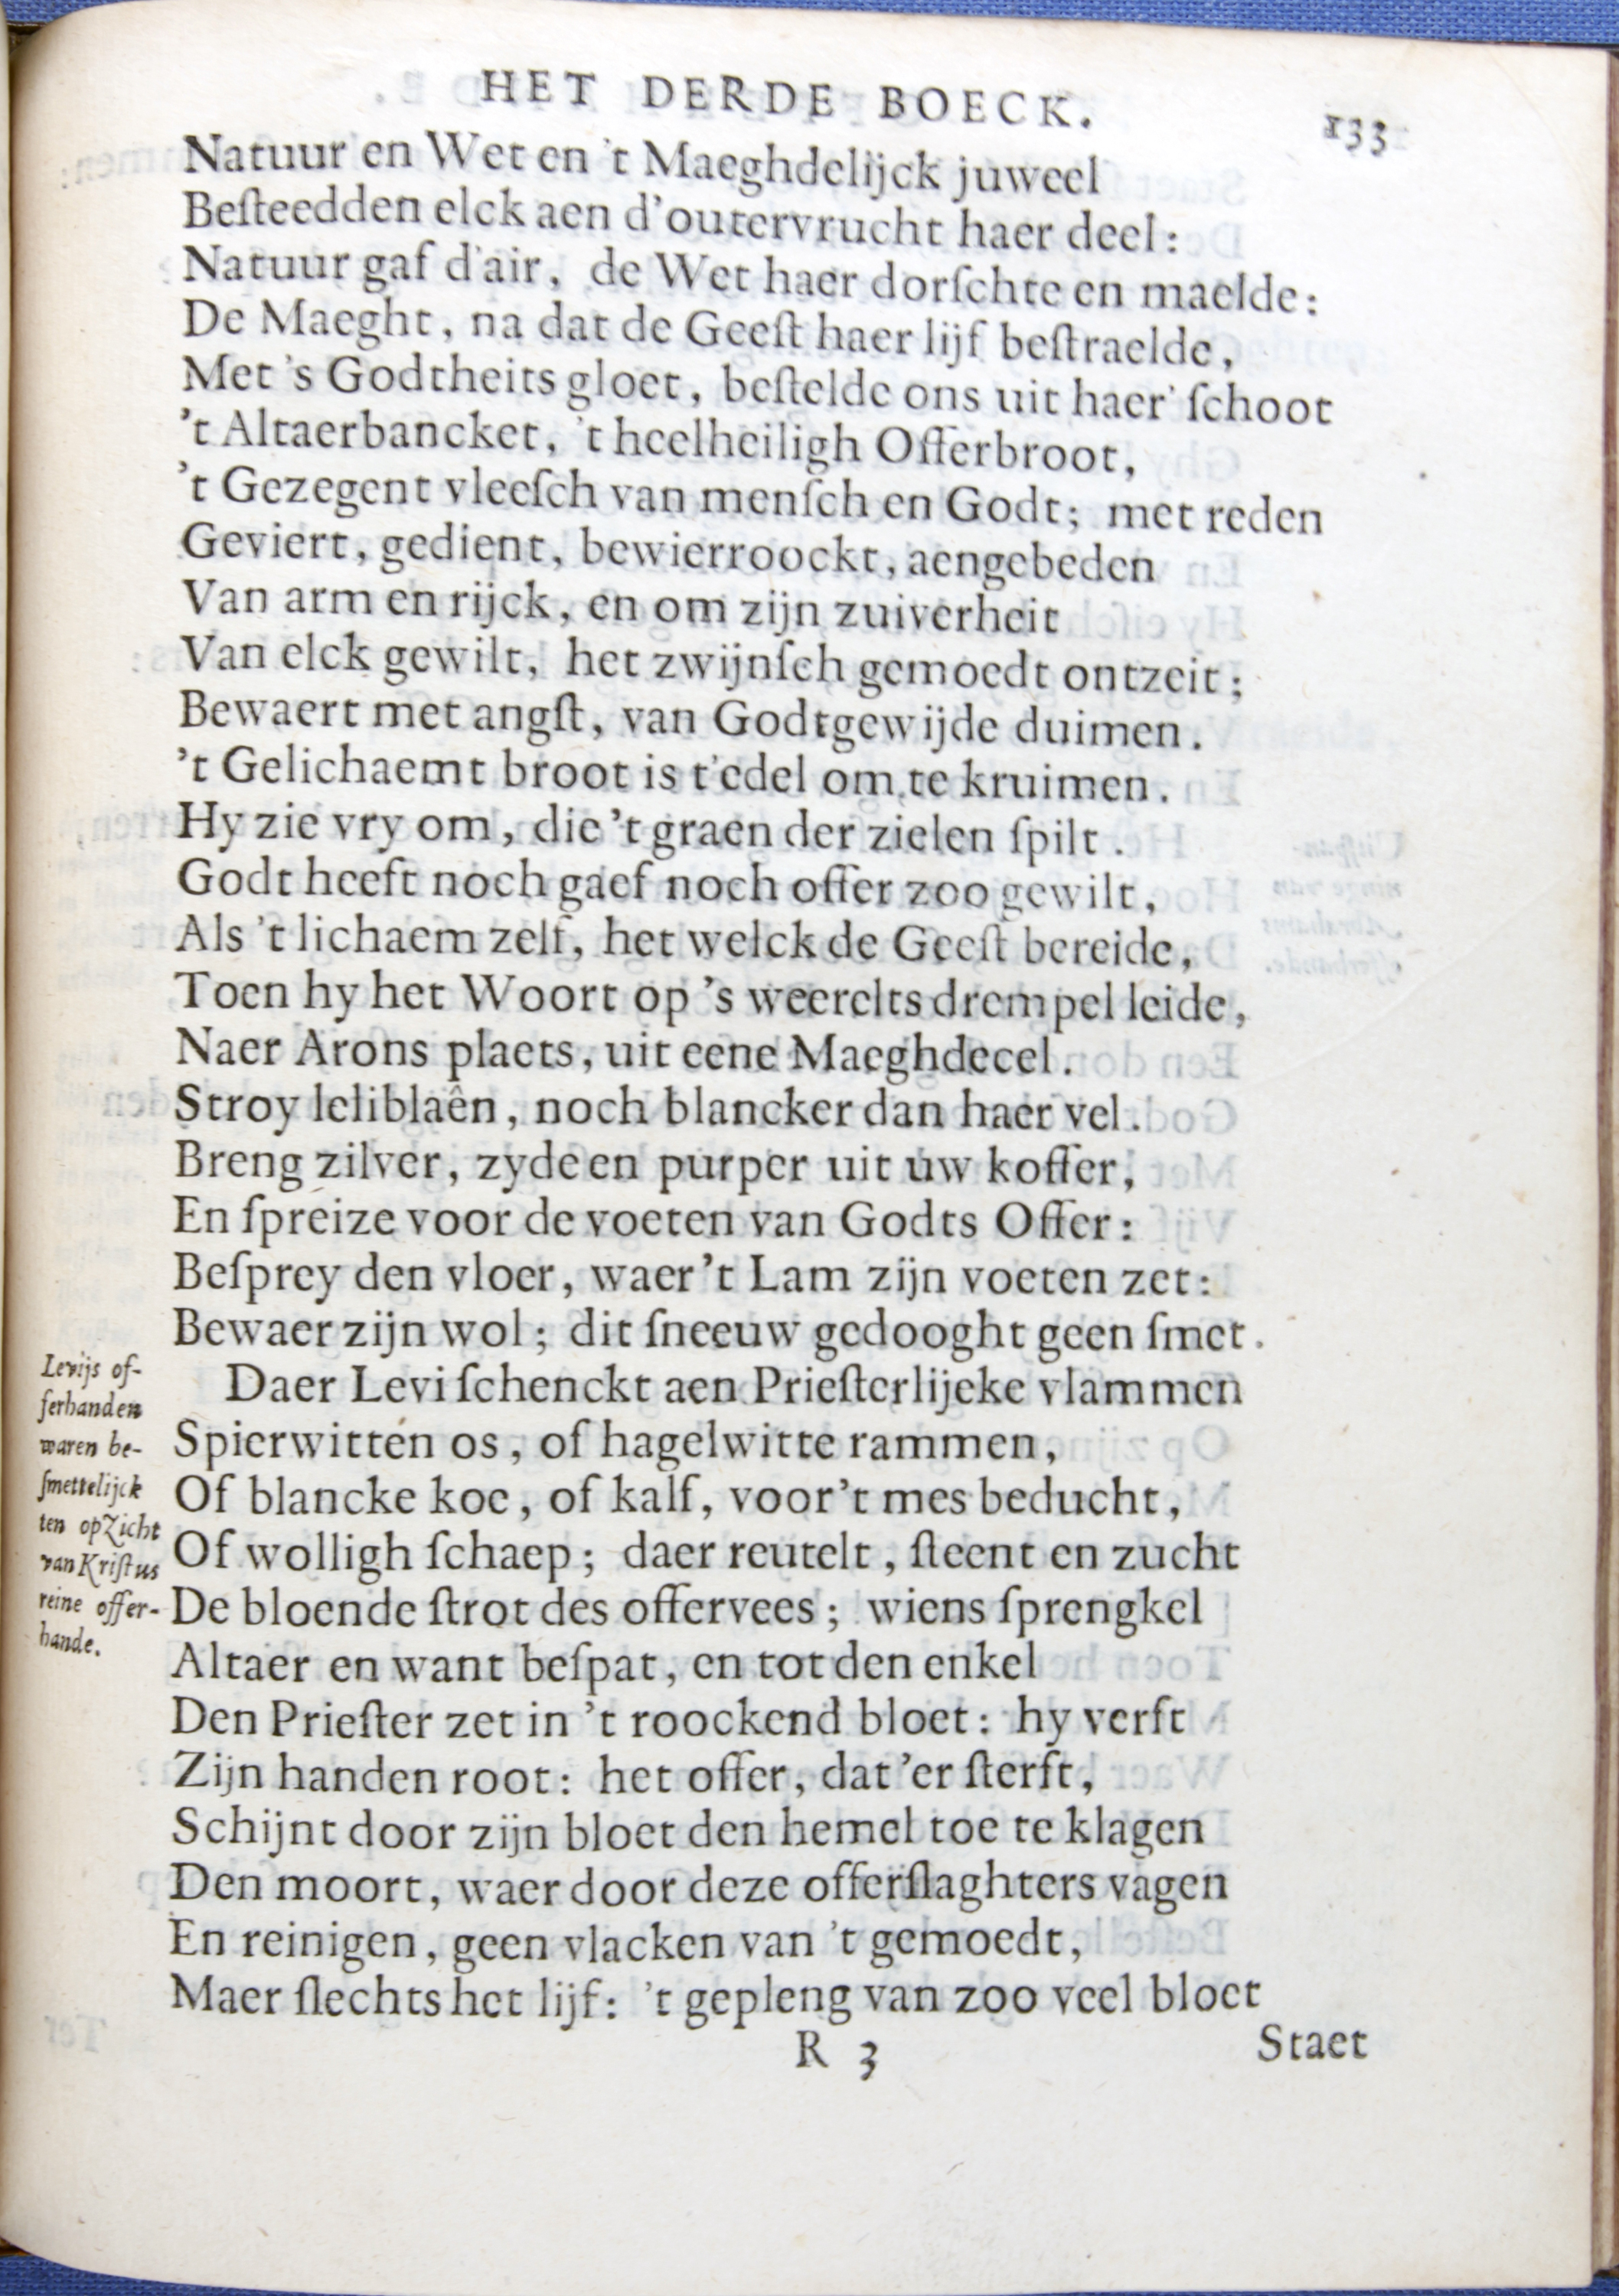 HET DERDE BOECK. 133
Natuur en Wet en 't Maeghdelijck juweel
Beſteedden elck aen d'outervrucht haer deel:
Natuur gaf d'air, de Wet haer dorſchte en maelde:
De Maeght, na dat de Geeſt haer lijf beſtraelde,
Met 's Godtheits gloet, beſtelde ons uit haer' ſchoot
't Altaerbancket, 't heelheiligh Offerbroot,
't Gezegent vleeſch van menſch en Godt; met reden
Geviert, gedient, bewierroockt, aengebeden
Van arm en rijck, en om zijn zuiverheit
Van elck gewilt, het zwijnſch gemoedt ontzeit;
Bewaert met angſt, van Godtgewijde duimen.
't Gelichaemt broot is t'edel om te kruimen.
Hy zie vry om, die 't graen der zielen ſpilt.
Godt heeft noch gaef noch offer zoo gewilt,
Als 't lichaem zelf, het welck de Geeſt bereide,
Toen hy het Woort op 's weerelts drempel leide,
Naer Arons plaets, uit eene Maeghdecel.
Stroy leliblaên, noch blancker dan haer vel.
Breng zilver, zyde en purper uit uw koffer,
En ſpreize voor de voeten van Godts Offer:
Beſprey den vloer, waer 't Lam zijn voeten zet:
Bewaer zijn wol; dit ſneeuw gedooght geen ſmet.
Levijs of-
ferhanden
waren be-
ſmettelijck
ten opzicht
van Kriſtus
reine offer-
hande.
Daer Levi ſchenckt aen Prieſterlijcke vlammen
Spierwitten os, of hagelwitte rammen,
Of blancke koe, of kalf, voor 't mes beducht,
Of wolligh ſchaep; daer reutelt, ſteent en zucht
De bloende ſtrot des offervees; wiens ſprengkel
Altaer en want beſpat, en tot den enkel
Den Prieſter zet in 't roockend bloet: hy verft
Zijn handen root: het offer, dat 'er ſterft,
Schijnt door zijn bloet den hemel toe te klagen
Den moort, waer door deze offerſlaghters vagen
En reinigen, geen vlacken van 't gemoedt,
Maer ſlechts het lijf: 't gepleng van zoo veel bloet
R 3 Staet